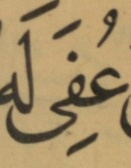 عُفِيَ لَه